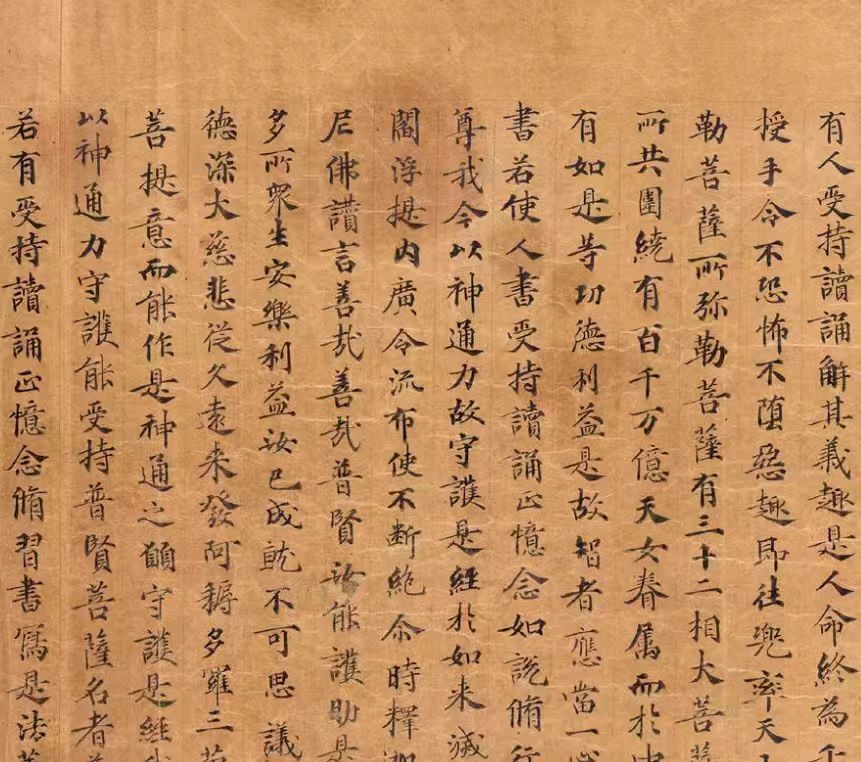 有人受持讀誦解其義趣是人命終為千
授手令不恐怖不墮惡趣即往兜率天上
勒菩薩所弥勒菩薩有三十二相大菩薩
所共圍繞有百千万億天女眷属而於中
有如是等功德利益是故智者應當一心
書若使人書受持讀誦正憶念如說脩行
尊我今以神通力故守護是經於如来滅
閻浮提内廣令流布使不斷絶尒時釋迦
尼佛讚言善哉善哉普賢汝能護助是
多所衆生安樂利益汝已成就不可思議
德深大慈悲従久遠来發阿耨多羅三藐
菩提意而能作是神通之願守護是經我
以神通力守護能受持普賢菩薩名者普
若有受持讀誦正憶念脩習書寫是法華